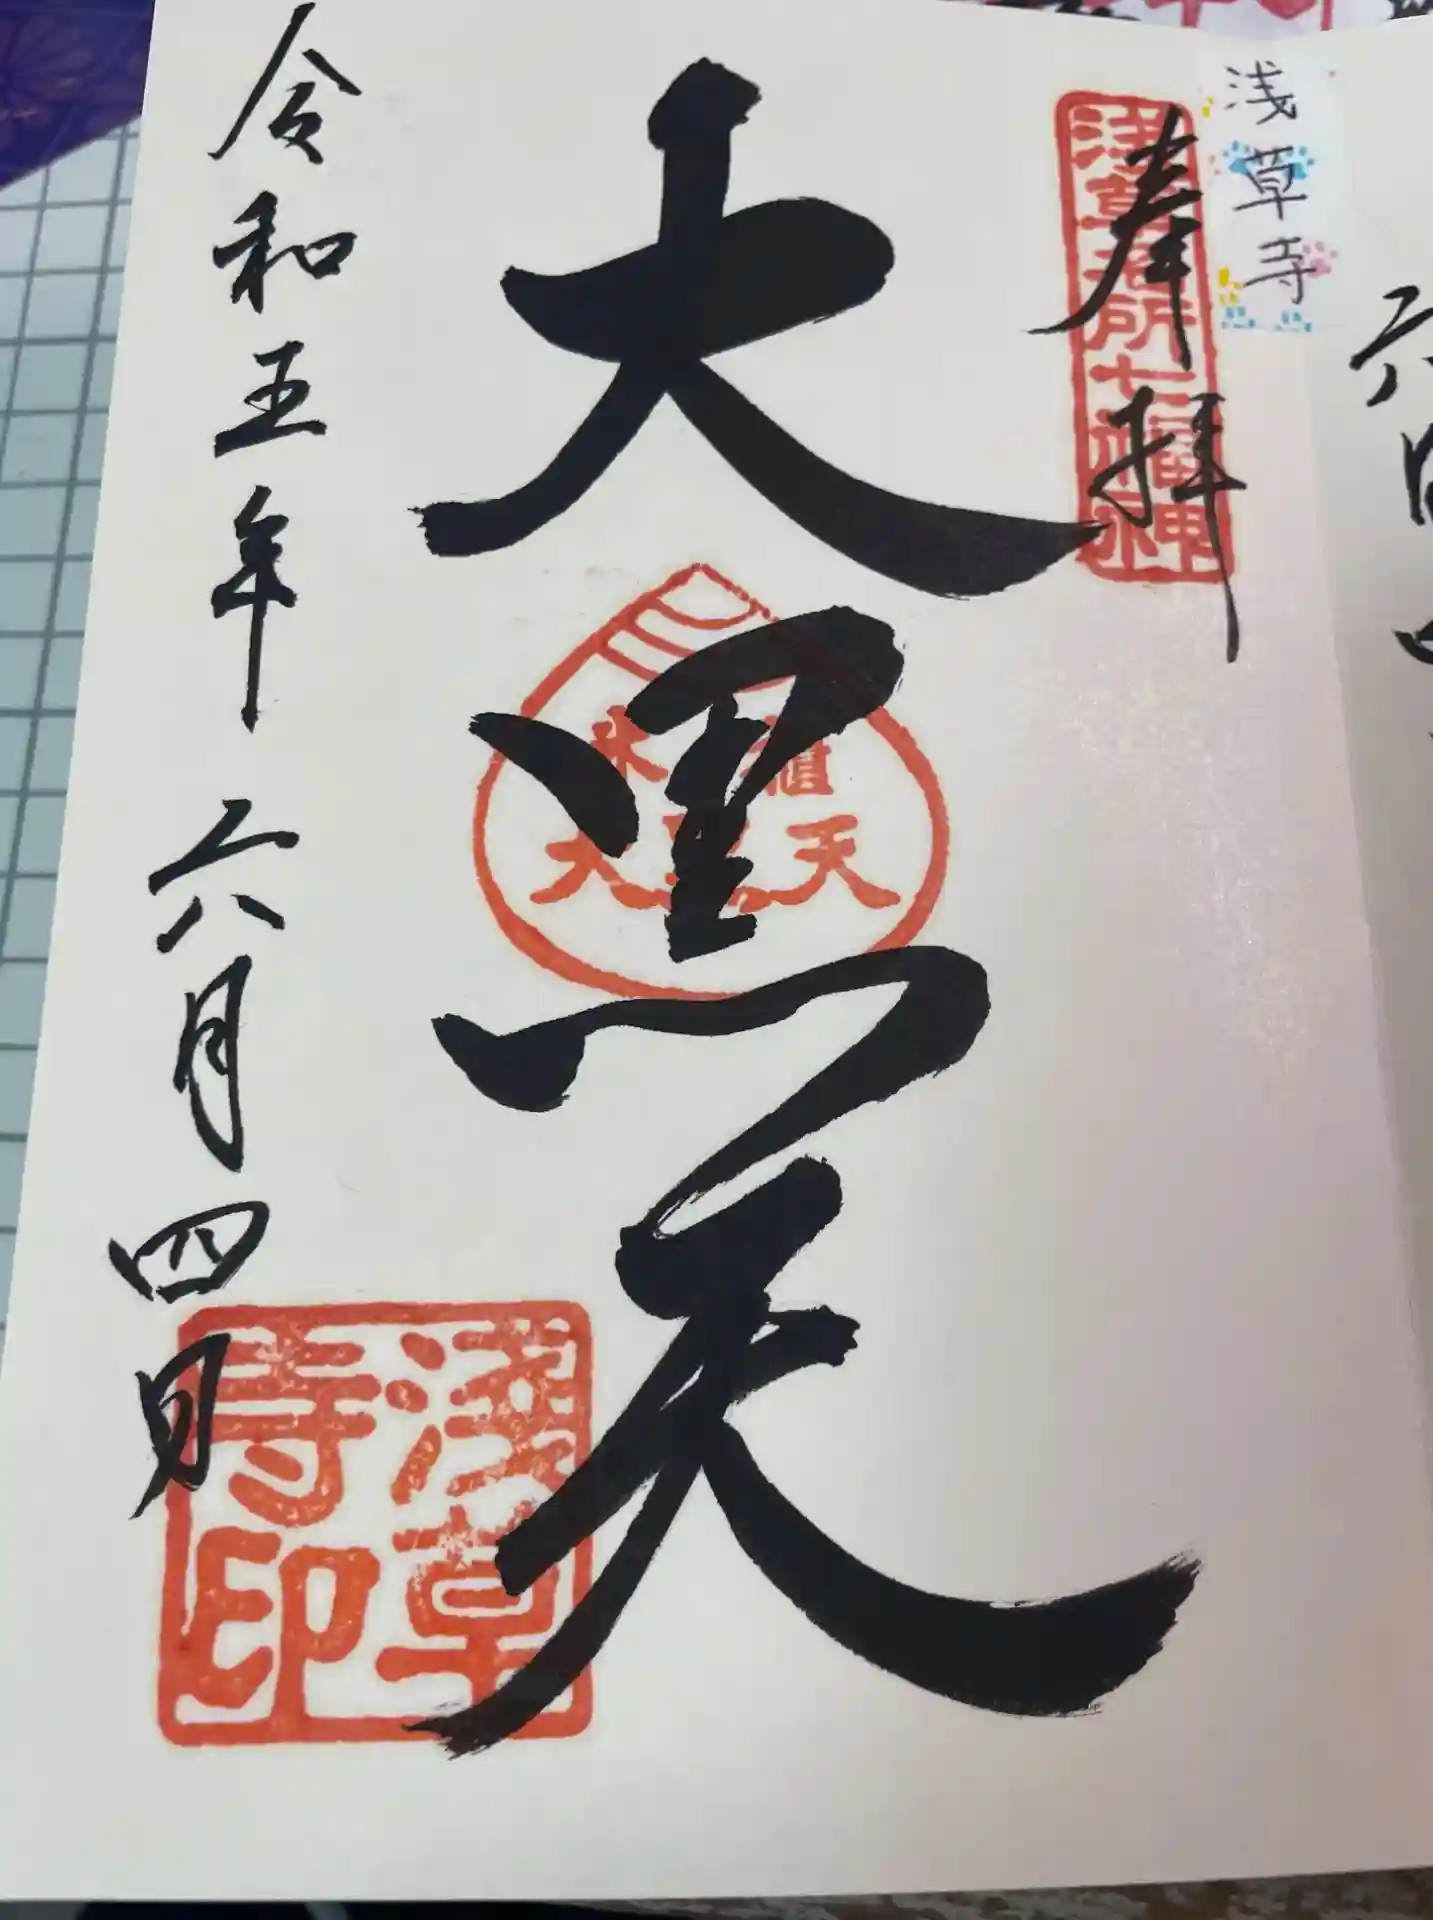 浅草寺
奉拝
浅草名所七福神
大黒天
米櫃
大黒天
令和五年六月四日
浅草
寺印
六日